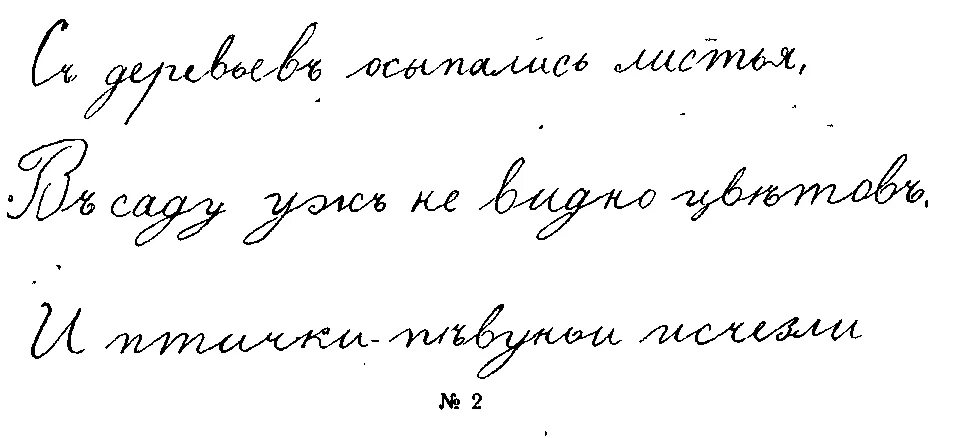 Съ деревьевъ осыпались листья,
Въ саду ужъ не видно цвѣтовъ.
И птички-пѣвуньи исчезли
№ 2